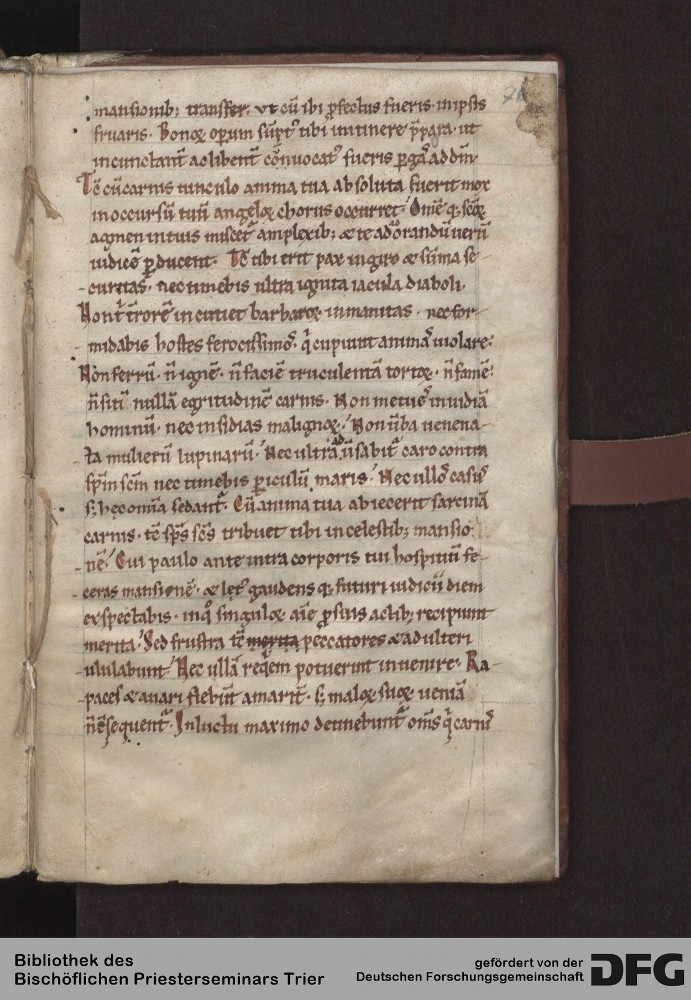 mansionib; transfer. ut cū ibi ꝓfectus fueris. in ipsis
fruaris. Bonoꝝ oꝑum sūpt᷒ tibi in itinere p̄para. ut
incunctant̄ ac libent̄ cōuocat᷒ fueris ꝑgas ad dn̄m.
Tc̄ cū carnis uinculo anima tua absoluta fuerit mox
in occursū tuū angeloꝝ chorus occurret. Omē q; scōꝝ
agmen in tuis miscet᷒ amplexib; & te ad adorandū uerū
iudicē ꝑducent. Tc̄ tibi erit pax in giro & sūma se-
curitas. nec timebis ultra ignita iacula diaboli
Non t̄ t̄rorē incutiet barbaroꝝ inmanitas. nec for-
midabis hostes ferocissimos. q̄ cupiunt animā uiolare.
Non ferrū. n̄ ignē. n̄ faciē truculentā tortoꝝ. n̄ famē.
n̄ sitī nullā egritudinē carnis. Non metues inuidiā
hominū. nec insidias malignoꝝ. Non ūba uenena-
ta mulierū lupinarū. Nec ultra aduersabit᷒ caro contra
sp̄m sc̄m nec timebis ꝑiculū maris. Nec ullos casus
s; hec omīa sedant᷒. Cū anima tua abiecerit sarcinā
carnis. tc̄ sp̄s sc̄s tribuet tibi in celestib; mansio
nē. Cui paulo ante intra corporis tui hospitiū fe-
ceras mansionē. & let᷒ gaudens q; futuri iudicii diem
exspectabis. in quo singuloꝝ aīe ꝓ suis actib; recipiunt
merita. Sed frustra tc̄ merita peccatores & adulteri
ululabunt. Nec ullā reqem potuerint inuenire. Ra-
paces & auari flebūt amarit̄. s; maloꝝ suoꝝ ueniā
n̄ c̄sequent᷒. In luctu maximo detinebunt᷒ om̄s q̄ carnis
Bibliothek des
Bischöflichen Priesterseminars Trier
gefördert von der
Deutschen Forschungsgemeinschaft
DFG